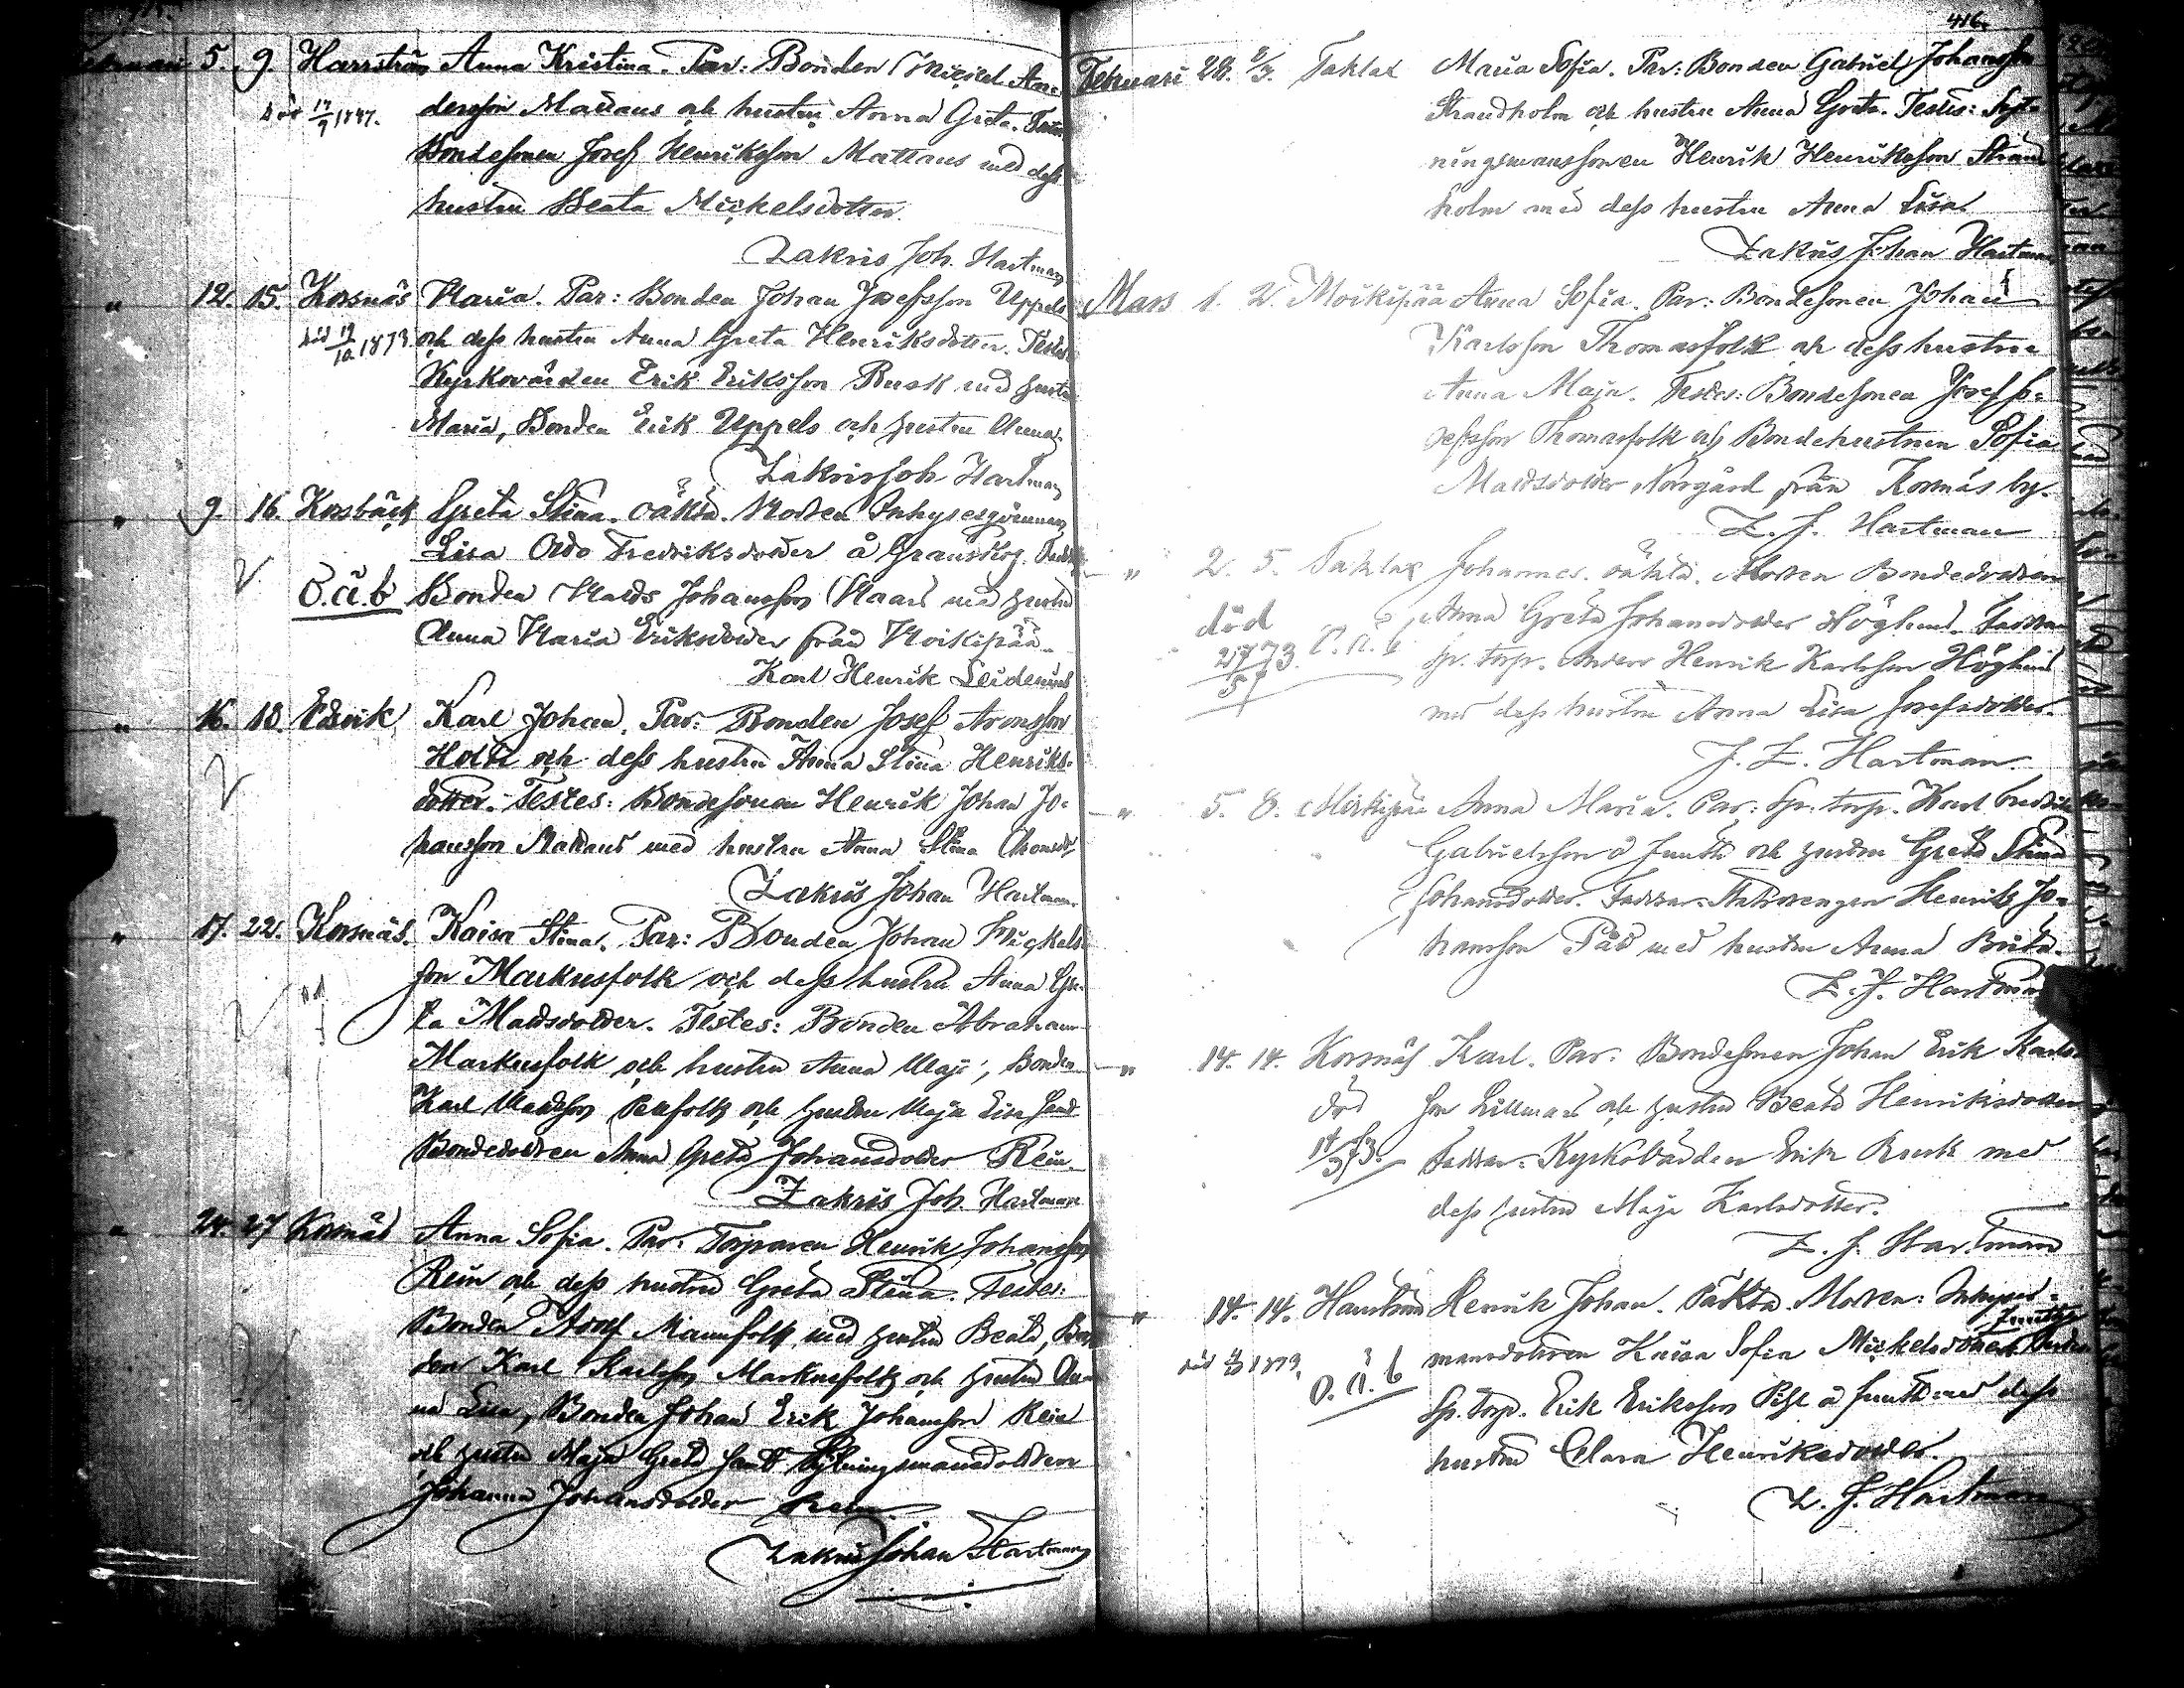 5. 9. Harrström Anna Kristina. Par: Bonden Mickel An-
död 17/9 1887. dersson Mattans och hustru Anna Greta.
Bondesonen Josef Henriksson Mattans med dess
hustru Beata Mickelsdotter.
Zakris Joh. Hartman
" 12. 15. Korsnäs Maria. Par: Bonden Johan Josefsson Uppels
död 19/10 1873 och dess hustru Anna Greta Henriksdotter. Testes
Kyrkovärden Erik Eriksson Rusk med hustru
Maria, Bonden Erik Uppels och hustru Anna.
Zakris Joh Hartman
" 9. 16. Korsbäck Greta Stina. oäkta. Modren
Lisa Fredriksdotter å
O.ä.b Bonden Mats Johansson med hustru
Anna Maria Eriksdotter från Moikipää.
Karl Henrik
" 16. 18. Edsvik Karl Johan. Par: Bonden Josef Aronsson
Holti och dess hustru Anna Stina Henriks-
dotter. Testes: Bondesonen Henrik Johan Jo-
hansson Mattans med hustru Anna Stina
Zakris Johan Hartman.
" 17. 22. Korsnäs. Kaisa Stina. Par: Bonden Johan Mickels-
son Markusfolk och dess hustru Anna Gre-
ta Matsdotter. Testes: Bonden Abraham
Markusfolk och hustru Anna Maja, Bonden
Karl Mattsson och hustru Maja Lisa samt
Bondedottren Anna Greta Johansdotter Rein.
Zakris Joh. Hartman
" 24. 27 Korsnäs Anna Sofia. Par: Torparen Henrik Johansson
Rein och dess hustru Greta Stina. Testes:
Bonden Adolf Mannfolk med hustru Beata, Bon-
den Karl Karlsson Markusfolk och hustru An-
na Lisa, Bonden Johan Erik Johansson Rein
och hustru Maja Greta samt Sytningsmansdottren
Johanna Johansdotter Rein.
Zakris Johan Hartman
416.
Februari 28. 2/3. Taklax Maria Sofia. Par: Bonden Gabriel Johansson
Strandholm och hustru Anna Greta. Testes: Syt-
ningsmanssonen Henrik Henriksson Strand-
holm med dess hustru Anna Lisa.
Zakris Johan Hartman
Mars 1. 2. Moikipää Anna Sofia. Par: Bondesonen Johan
Karlsson Thomasfolk och dess hustru
Anna Maja. Testes: Bondesonen Josef Jo-
sefsson Thomasfolk och Bondehustrun Sofia
Matsdotter Norrgård från Korsnäs by.
Z. J. Hartman
" 2. 5. Taklax Johannes. oäkta. Modren Bondedottren
död Anna Greta Johansdotter Höglund. Faddrar
27/5 73. O.ä.b Sp. torp. Anders Henrik Karlsson Höglund
med dess hustru Anna Lisa Josefsdotter.
J. Z. Hartman.
" 5. 8. Moikipää Anna Maria. Par: Sp. torp. Karl Fredrik
Gabrielsson å Juntti och hustru Greta Stina
Johansdotter. Faddrar: Henrik Jo-
hansson med hustru Anna Brita.
Z. J. Hartman
" 14. 14. Korsnäs Karl. Par: Bondesonen Johan Erik Karls-
död son Lillmars och hustru Beata Henriksdotter
14/3 73. Faddrar: Kyrkovärden Erik Rusk med
dess hustru Maja Karlsdotter.
Z. J. Hartman
" 14. 14. Harrström Henrik Johan. Oäkta. Modren: Inhyses-
Juntti
död 1873 mansdottren Kaisa Sofia Mickelsdotter.
O.ä.b Sp. torp. Erik Eriksson å Juntti med dess
hustru Clara Henriksdotter.
Z. J. Hartman